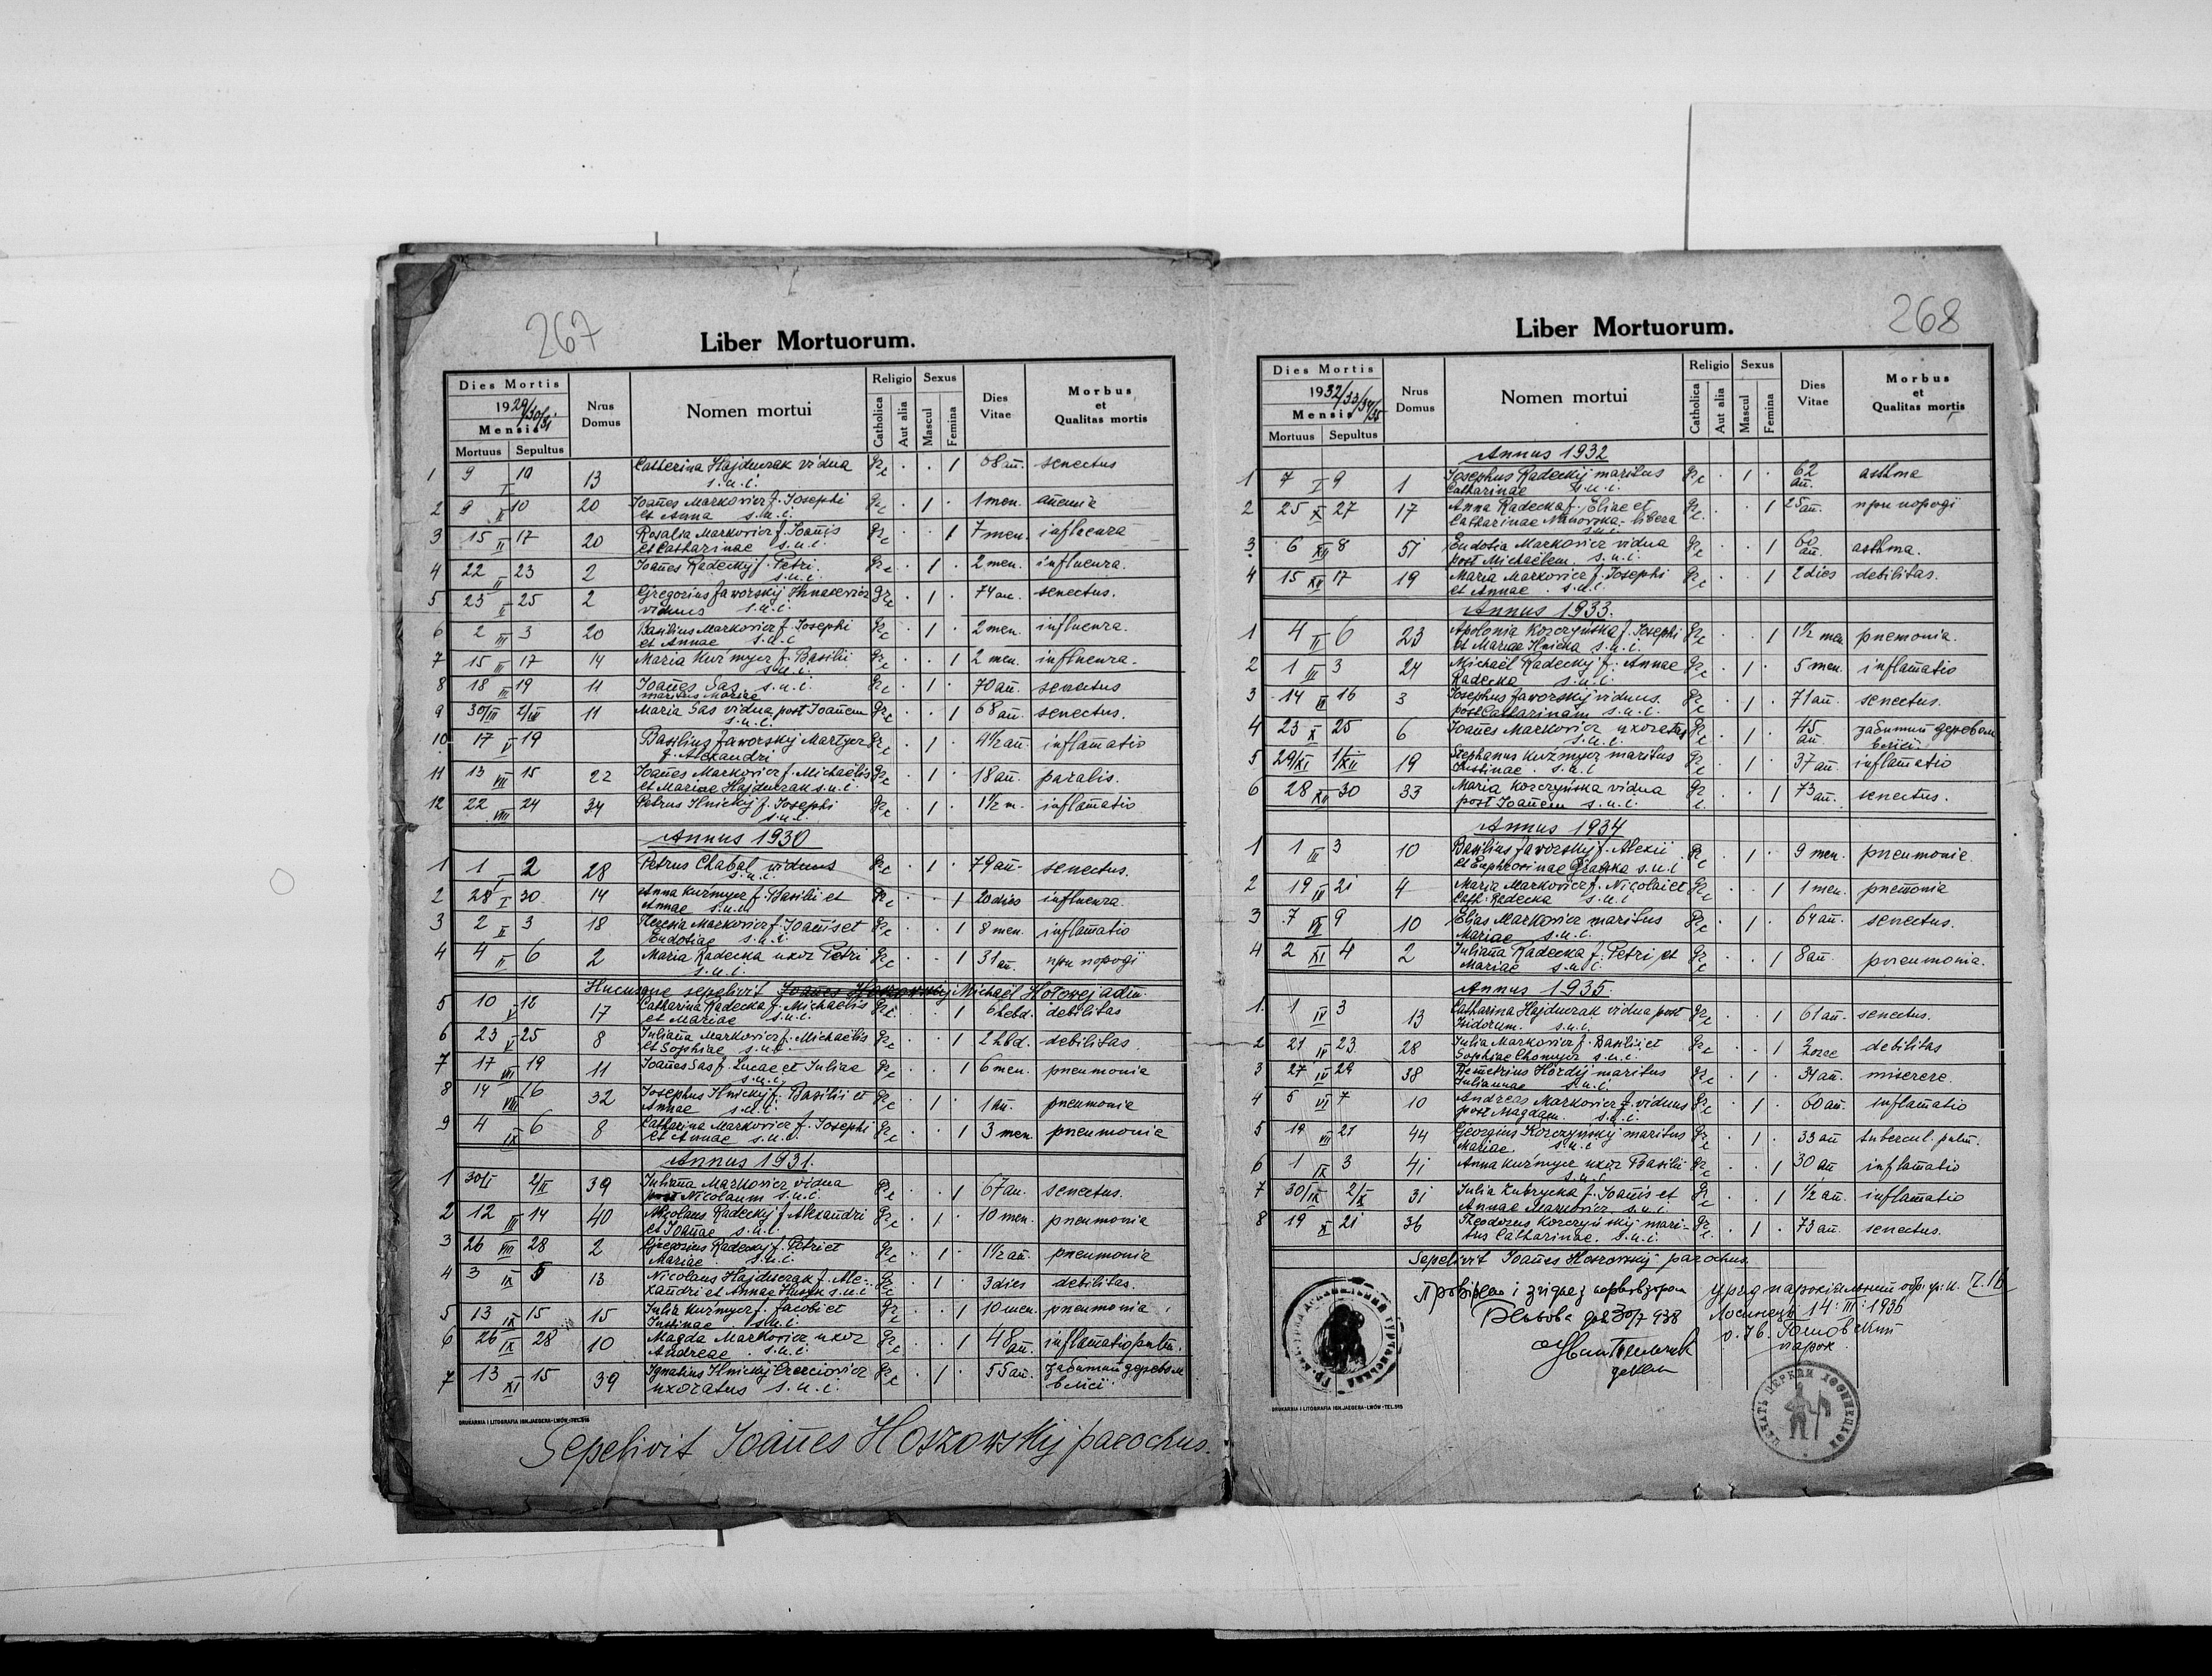 267
Liber Mortuorum.
Dies Mortis Nrus Domus Nomen mortui Religio Sexus Dies Vitae Morbus et Qualitas mortis
1929/30/31
Mensis Catholica Aut alia Mascul Femina
Mortuus Sepultus
1 9 I 10 13 Catherina Hajduczak vidua Gr. c . . 1 68 an̄. senectus
s.u.i.
2 9 II 10 20 Joan̄es Markovicz f. Josephi Gr. c . 1 . 1 men. an̄emia
et Anna s.u.i.
3 15 II 17 20 Rosalia Markovicz f. Joan̄is Gr. c . . 1 7 men. influenza
et Catharinae s.u.i.
4 22 II 23 2 Joan̄es Radeckyj f. Petri Gr. c . 1 . 2 men. influenza.
s.u.i.
5 23 II 25 2 Gregorius Jaworskyj Gr. c . 1 . 74 an. senectus.
viduus s.u.i.
6 2 III 3 20 Basilius Markovicz f. Josephi Gr. c . 1 . 2 men. influenza.
et Annae s.u.i.
7 15 III 17 14 Maria Kuźmycz f. Basilii Gr. c . . 1 2 men. influenza.
s.u.i.
8 18 III 19 11 Joan̄es Sas s.u.i. Gr. c . 1 . 70 an̄. senectus
maritus Mariae
9 30/III 2/IV 11 Maria Sas vidua post Joan̄em Gr. c . . 1 68 an̄. senectus.
s.u.i.
10 17 V 19 Basilius Jaworskyj Martycz Gr. c . 1 . 4½ an̄. inflam̄atio
f. Alexandri
11 13 VII 15 22 Joan̄es Markovicz f. Michaelis Gr. c . 1 . 18 an̄. paralis.
et Mariae Hajduczak s.u.i.
12 22 VIII 24 34 Petrus Ilnickyj f. Josephi Gr. c . 1 . 1½ m. inflam̄atio
s.u.i.
Annus 1930
1 1 I 2 28 Petrus Chabal viduus Gr. c . 1 . 79 an̄. senectus.
s.u.i.
2 28 I 30 14 Anna Kuźmycz f. Basilii et Gr. c . . 1 20 dies influenza.
Annae s.u.i.
3 2 II 3 18 Markovicz f. Joan̄is et Gr. c . . 1 8 men. inflam̄atio
Eudotiae s.u.i.
4 4 II 6 2 Maria Radecka uxor Petri Gr. c . . 1 31 an. при порогї
s.u.i.
Hucusque sepelivit Michaël Hołowej adm.
5 10 V 12 17 Catharina Radecka f. Michaelis Gr. c . . 1 6 hebd. debilitas
et Mariae s.u.i.
6 23 V 25 8 Julian̄a Markovicz f. Michaelis Gr. c . . 1 2 hbd. debilitas.
et Sophiae s.u.i.
7 17 VIII 19 11 Joan̄es Sas f. Lucae et Juliae Gr. c . . 1 6 men. pneumonia
s.u.i.
8 14 VIII 16 32 Josephus Ilnickyj f. Basilii et Gr. c . 1 . 1 an̄. pneumonia
Annae s.u.i.
9 4 IX 6 8 Catharina Markovicz f. Josephi Gr. c . . 1 3 men. pneumonia
et Annae s.u.i.
Annus 1931.
1 30/I 2/II 39 Julian̄a Markovicz vidua Gr. c . . 1 67 an. senectus.
post Nicolaum s.u.i.
2 12 III 14 40 Nicolaus Radeckyj f. Alexandri Gr. c . 1 . 10 men. pneumonia
et Joan̄ae s.u.i.
3 26 VIII 28 2 Gregorius Radeckyj f. Petri et Gr. c . 1 . 1½ an̄. pneumonia
Mariae s.u.i.
4 3 IX 5 13 Nicolaus Hajduczak f. Ale- Gr. c . 1 . 3 dies debilitas.
xandri et Annae s.u.i.
5 13 IX 15 15 Julia Kuźmycz f. Jacobi et Gr. c . . 1 10 men. pneumonia
Justinae s.u.i.
6 26 IX 28 10 Magda Markovicz uxor Gr. c . . 1 48 an̄. inflam̄atio pulm.
Andreae . s.u.i.
7 13 XI 15 39 Ignatius Ilnickyj Gr. c . 1 . 55 an̄. забитий деревом
uxoratus s.u.i. в лісї
DRUKARNIA I LITOGRAFIA IGN.JAEGERA-LWÓW-TEL.515
Sepelivit Joan̄es Hoszowskyj parochus.
268
Liber Mortuorum.
Dies Mortis Nrus Domus Nomen mortui Religio Sexus Dies Vitae Morbus et Qualitas mortis
1932/33/34/35
Mensis Catholica Aut alia Mascul Femina
Mortuus Sepultus
Annus 1932
1 7 I 9 1 Josephus Radeckyj maritus Gr. c . 1 . 62 an̄. asthma
Catharinae s.u.i.
2 25 X 27 17 Anna Radecka f. Eliae et Gr. c . . 1 25 an̄. при порогї
Catharinae libera
s.u.i.
3 6 XII 8 51 Eudotia Markovicz vidua Gr. c . . 1 60 an̄. asthma.
post Michaëlem s.u.i.
4 15 XII 17 19 Maria Markovicz f. Josephi Gr. c . . 1 2 dies debilitas.
et Annae . s.u.i.
Annus 1933.
1 4 II 6 23 Apolonia Korczyńska f. Josephi Gr. c . . 1 1½ men. pnemonia.
et Mariae Ilnicka s.u.i.
2 1 III 3 24 Michaël Radeckyj f. Annae Gr. c . 1 . 5 men. inflam̄atio
Radecka s.u.i.
3 14 II 16 3 Josephus Jaworskyj viduus Gr. c . 1 . 71 an̄. senectus.
post Catharinam s.u.i.
4 23 X 25 6 Joan̄es Markovicz uxoratus Gr. c . 1 . 45 an̄. забитий деревом
s.u.i. в лїсї
5 29/XI 1/XII 19 Stephanus Kuźmycz maritus Gr. c . 1 . 37 an̄. inflam̄atio
Justinae . s.u.i
6 28 XII 30 33 Maria Korczyńska vidua Gr. c . . 1 73 an̄. senectus.
post Joan̄em s.u.i.
Annus 1934
1 1 III 3 10 Basilius Jaworskyj f. Alexii Gr. c . 1 . 9 men. pneumonia.
et Euphrosinae s.u.i
2 19 IV 21 4 Maria Markovicz f. Nicolai et Gr. c . . 1 1 men. pnemonia
Cath. Radecka s.u.i
3 7 IX 9 10 Elias Markovicz maritus Gr. c . 1 . 64 an̄. senectus.
Mariae s.u.i.
4 2 XI 4 2 Julian̄a Radecka f. Petri et Gr. c . . 1 8 an̄. pneumonia.
Mariae s.u.i.
Annus 1935.
1. 1 IV 3 13 Catharina Hajduczak vidua post Gr. c . . 1 61 an̄. senectus.
Isidorum. s.u.i.
2 21 IV 23 28 Julia Markovicz f. Basilii et Gr. c . . 1 2 horae debilitas
Sophiae s.u.i.
3 27 IV 29 38 Demetrius Hordij maritus Gr. c . 1 . 34 an̄. miserere.
Juliannae s.u.i.
4 5 VI 7 10 Andreas Markovicz viduus Gr. c . 1 . 60 an̄. inflam̄atio
post Magdam. s.u.i.
5 19 VII 21 44 Georgius Korczyńskyj maritus Gr. c . 1 . 33 an̄ tubercul. pulm.
Mariae s.u.i
6 1 IX 3 41 Anna Kuźmycz uxor Basilii Gr. c . . 1 30 an̄ inflam̄atio
s.u.i.
7 30/IX 2/X 31 Julia Zubrycka f. Joan̄is et Gr. c . . 1 ½ an̄. inflam̄atio
Annae Markovicz s.u.i.
8 19 X 21 36 Theodorus Korczyńskyj mari- Gr. c . 1 . 73 an̄. senectus.
tus Catharinae. s.u.i.
Sepelivit Joan̄es Hoszowskyj parochus.
Провірено і згідне з первовзором
Львова дня 30/7 938
декан
Уряд парохіяльний обр. гр. к. Ч. 16
Лосинець 14. III. 1936
о. Ів. Гошовский
парох
ПЕЧАТЬ ЦЕРКВИ ЛОСИНЕЦКОЇ
DRUKARNIA I LITOGRAFIA IGN.JAEGERA-LWÓW-TEL.515